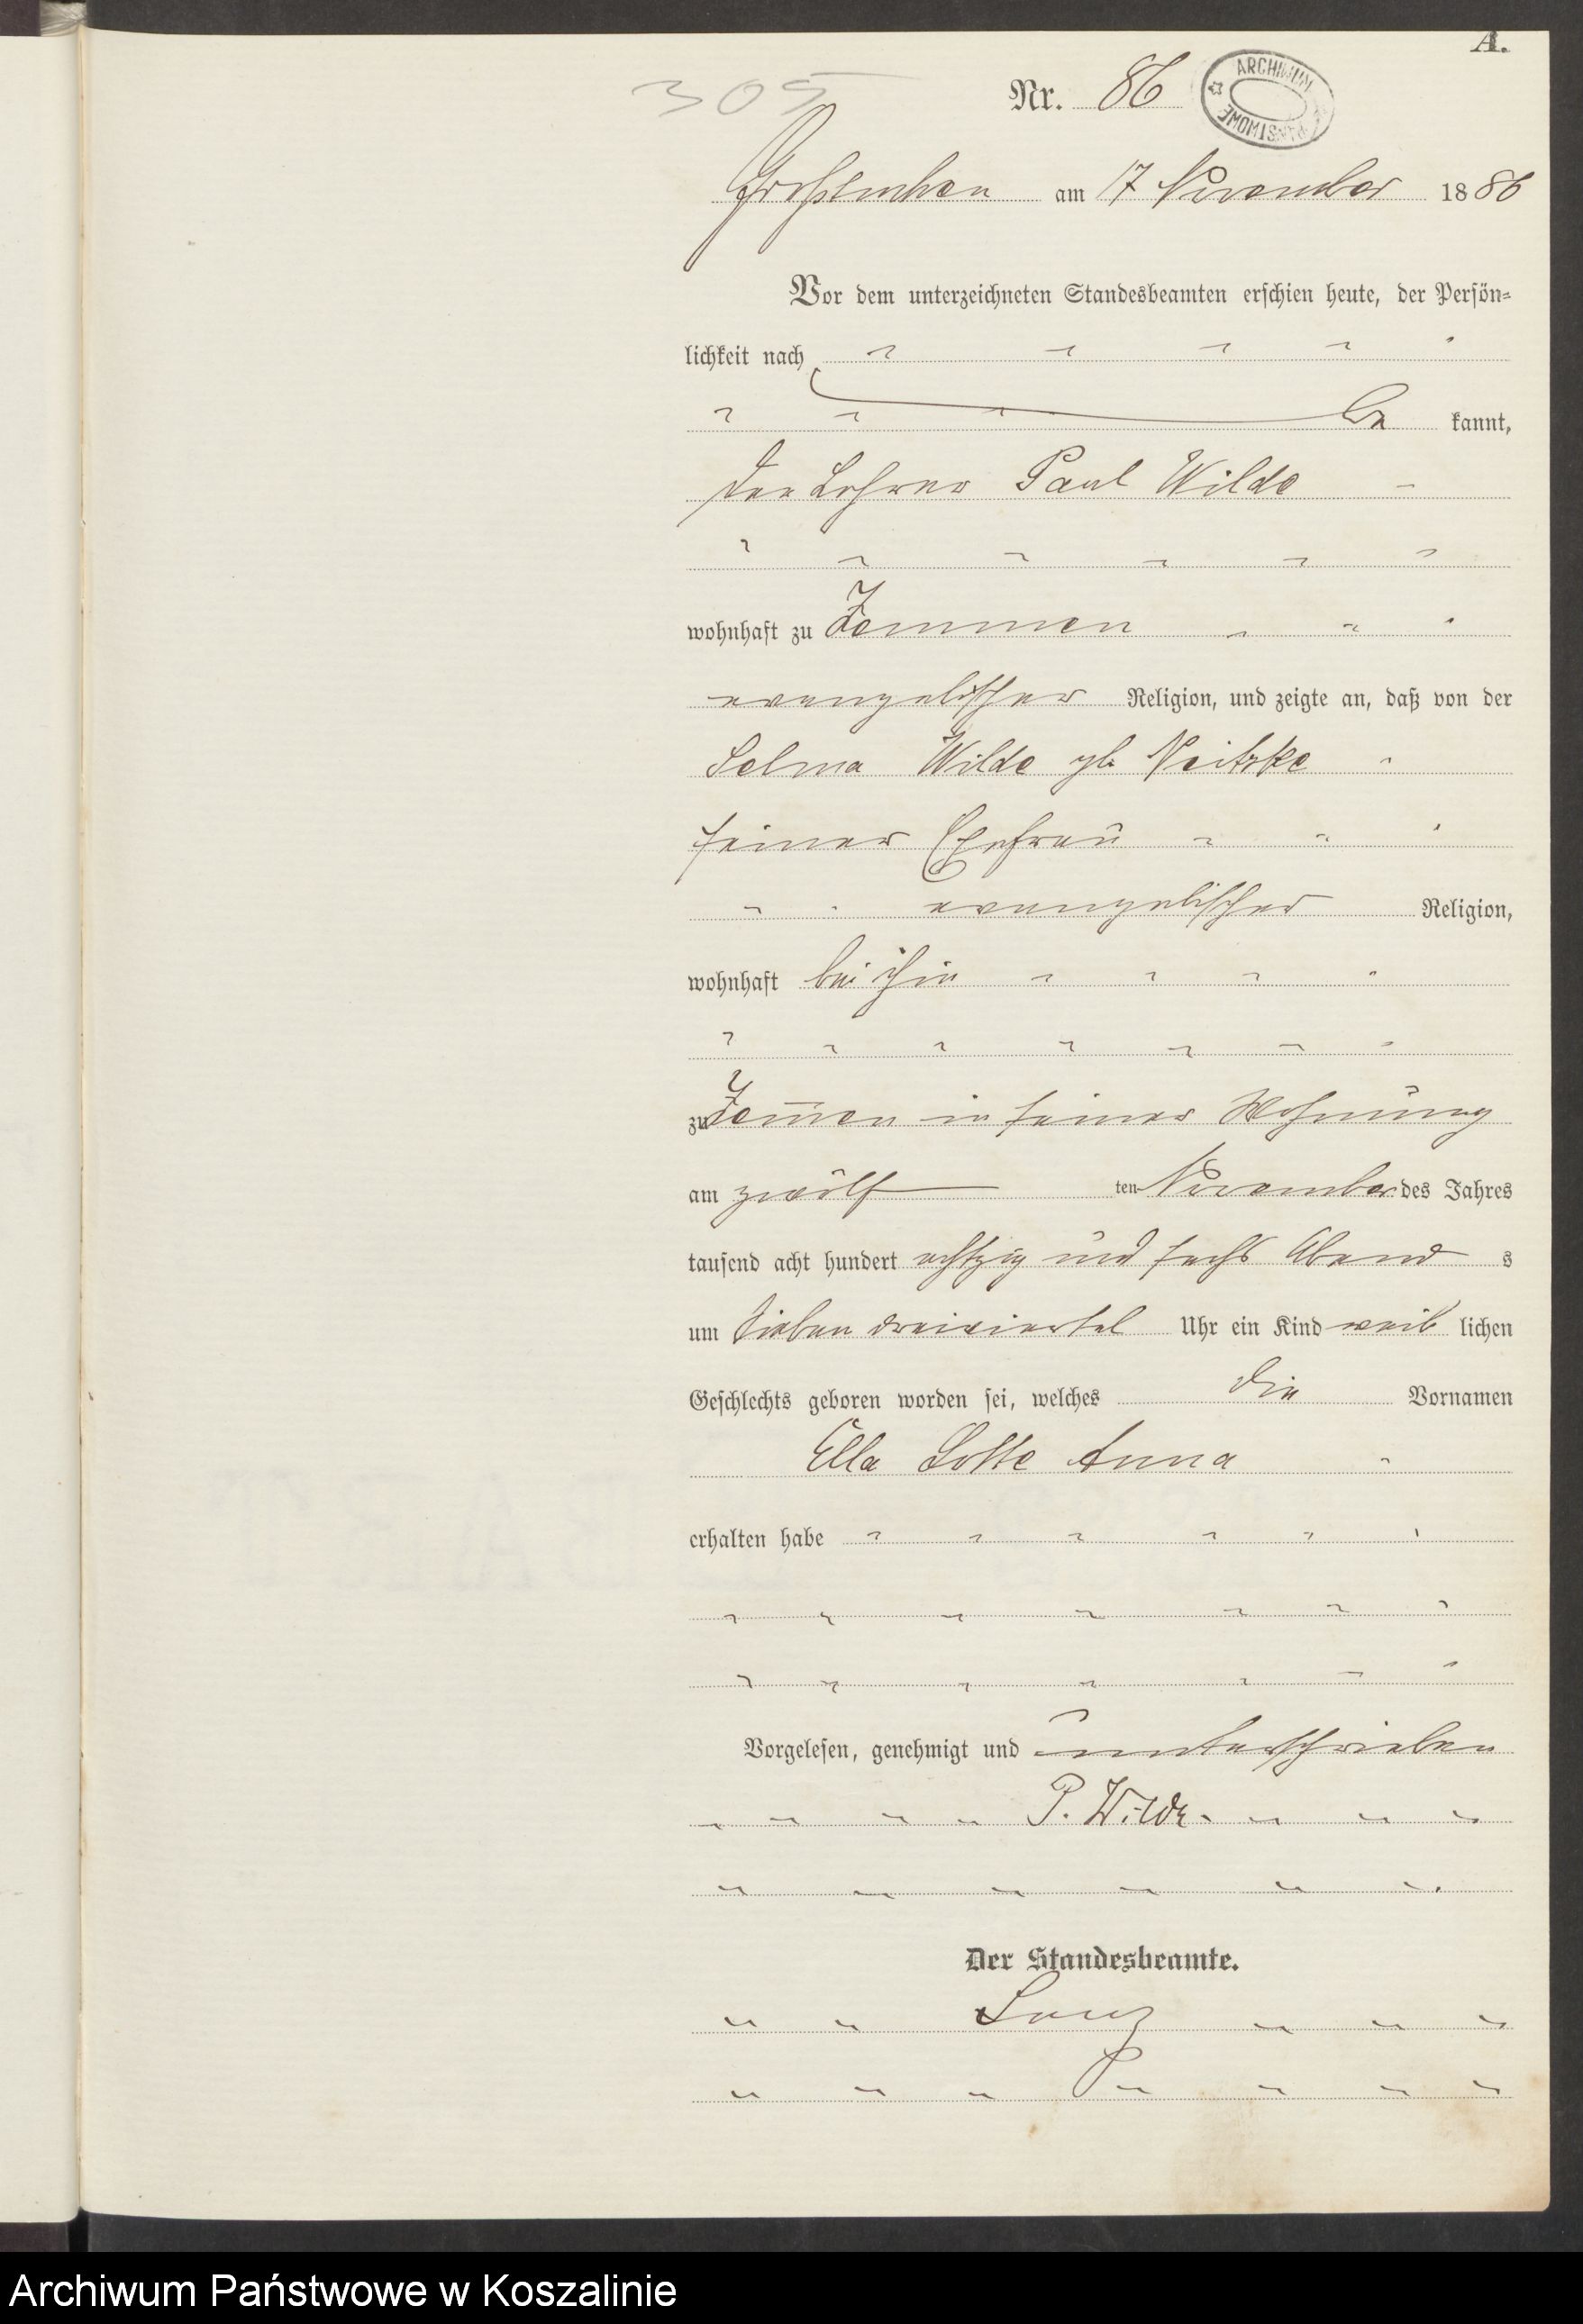 A.
305
Nr. 86
ARCHIWUM PAŃSTWOWE
am 17 November 1886
Vor dem unterzeichneten Standesbeamten erschien heute, der Persön-
lichkeit nach
be kannt,
der Lehrer Paul Wilde
wohnhaft zu Zemmen
evangelischer Religion, und zeigte an, daß von der
Selma Wilde gb Neitzke
seiner Ehefrau
evangelischer Religion,
wohnhaft bei ihm
zu Zem̄en in seiner Wohnung
am zwölf ten November des Jahres
tausend acht hundert achtzig und sechs Abend s
um sieben dreiviertel Uhr ein Kind weib lichen
Geschlechts geboren worden sei, welches die Vornamen
Ella Lotte Anna
erhalten habe
Vorgelesen, genehmigt und unterschrieben
P. Wilde.
Der Standesbeamte.
Archiwum Państwowe w Koszalinie